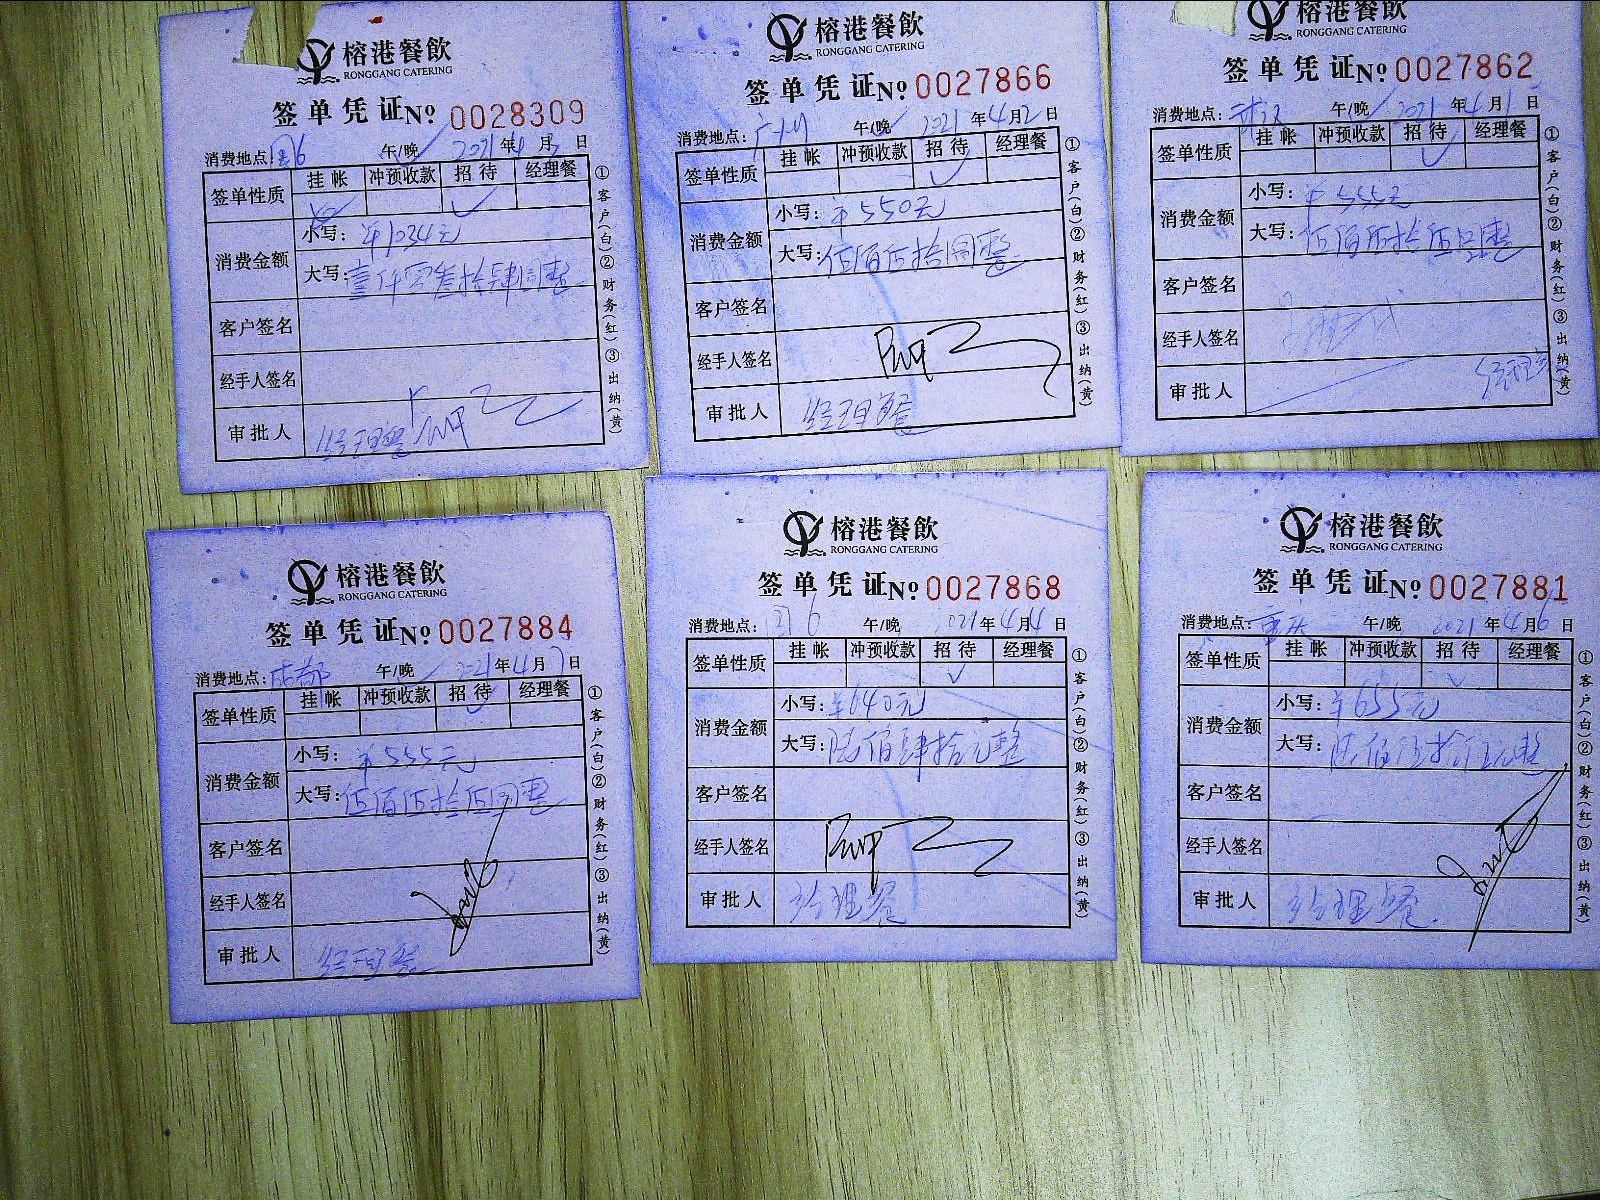 榕港餐飲
RONGGANG CATERING
签单凭证 No 0028309
消费地点: 国6 午/晚 2021年4月3日
签单性质 挂帐 冲预收款 招待 经理餐
消费金额
小写: ¥1034元
大写: 壹仟零叁拾肆圆整
客户签名
经手人签名
审批人 经理餐
①客户(白)②财务(红)③出纳(黄)
榕港餐飲
RONGGANG CATERING
签单凭证 No 0027866
消费地点: 广州 午/晚 2021年4月2日
签单性质 挂帐 冲预收款 招待 经理餐
消费金额
小写: ¥550元
大写: 伍佰伍拾圆整
客户签名
经手人签名
审批人 经理餐
①客户(白)②财务(红)③出纳(黄)
榕港餐飲
RONGGANG CATERING
签单凭证 No 0027862
消费地点: 武汉 午/晚 2021年4月1日
签单性质 挂帐 冲预收款 招待 经理餐
消费金额
小写: ¥555元
大写: 伍佰伍拾伍元整
客户签名
经手人签名
审批人 经理餐
①客户(白)②财务(红)③出纳(黄)
榕港餐飲
RONGGANG CATERING
签单凭证 No 0027884
消费地点: 成都 午/晚 2021年4月7日
签单性质 挂帐 冲预收款 招待 经理餐
消费金额
小写: ¥555元
大写: 伍佰伍拾伍圆整
客户签名
经手人签名
审批人 经理餐
①客户(白)②财务(红)③出纳(黄)
榕港餐飲
RONGGANG CATERING
签单凭证 No 0027868
消费地点: 国6 午/晚 2021年4月4日
签单性质 挂帐 冲预收款 招待 经理餐
消费金额
小写: ¥640元
大写: 陆佰肆拾元整
客户签名
经手人签名
审批人 经理餐
①客户(白)②财务(红)③出纳(黄)
榕港餐飲
RONGGANG CATERING
签单凭证 No 0027881
消费地点: 重庆 午/晚 2021年4月6日
签单性质 挂帐 冲预收款 招待 经理餐
消费金额
小写: ¥655元
大写: 陆佰伍拾伍元整
客户签名
经手人签名
审批人 经理餐.
①客户(白)②财务(红)③出纳(黄)